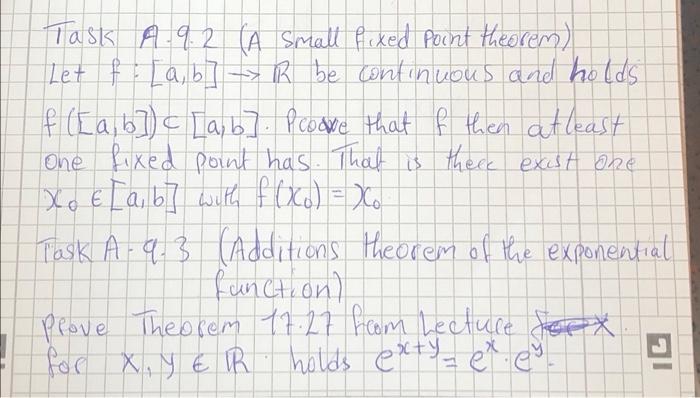 Task A.9.2 (A small fixed point theorem)
Let f : [a,b] → R be continuous and holds
f([a,b]) ⊂ [a,b]. Proove that f then atleast
one fixed point has. That is there exist one
x₀ ∈ [a,b] with f(x₀) = x₀
Task A-9.3 (Additions theorem of the exponential
function)
Prove Theorem 17.27 from Lecture
for x, y ∈ R holds e^{x+y} = e^x · e^y.